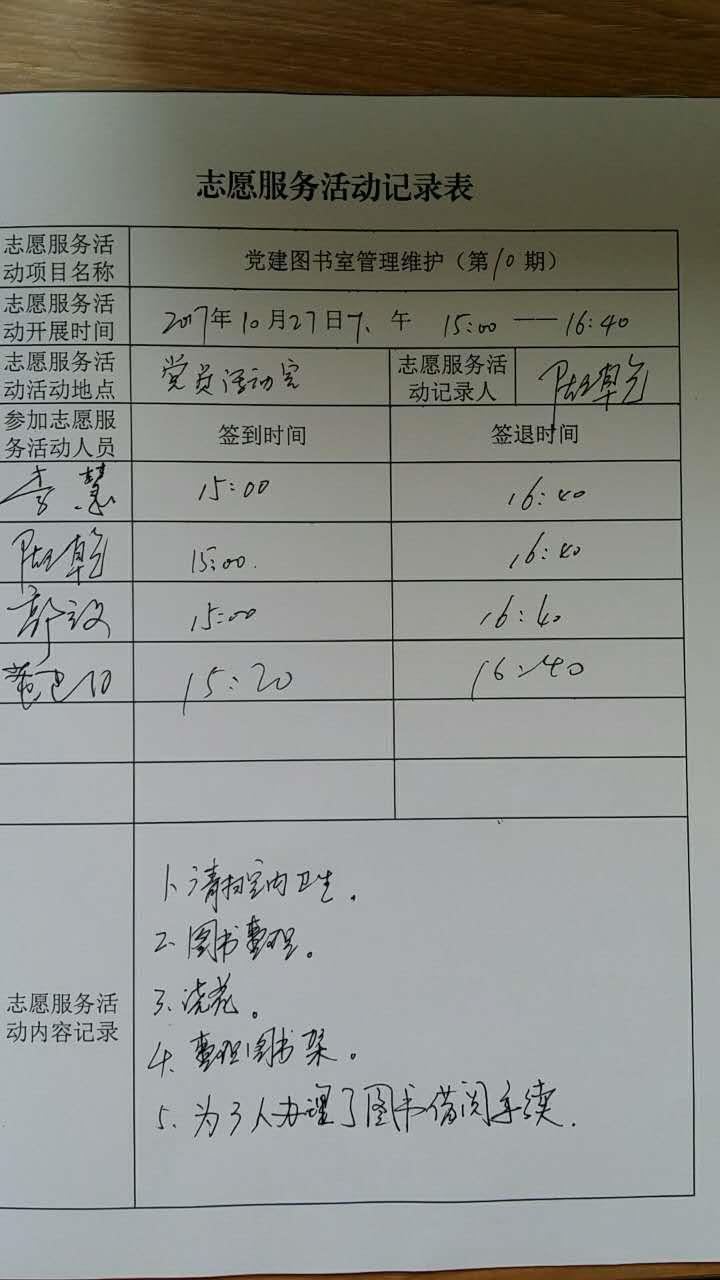 志愿服务活动记录表
志愿服务活
动项目名称
党建图书室管理维护（第10期）
志愿服务活
动开展时间
2017年10月27日下午 15:00 — 16:40
志愿服务活
动活动地点
党员活动室
志愿服务活
动记录人
参加志愿服
务活动人员
签到时间
签退时间
李慧 15:00 16:40
15:00. 16:40
15:00 16:40
15:20 16:40
志愿服务活
动内容记录
1、清扫室内卫生.
2、图书整理。
3、浇花。
4、整理图书架。
5、为3人办理了图书借阅手续.